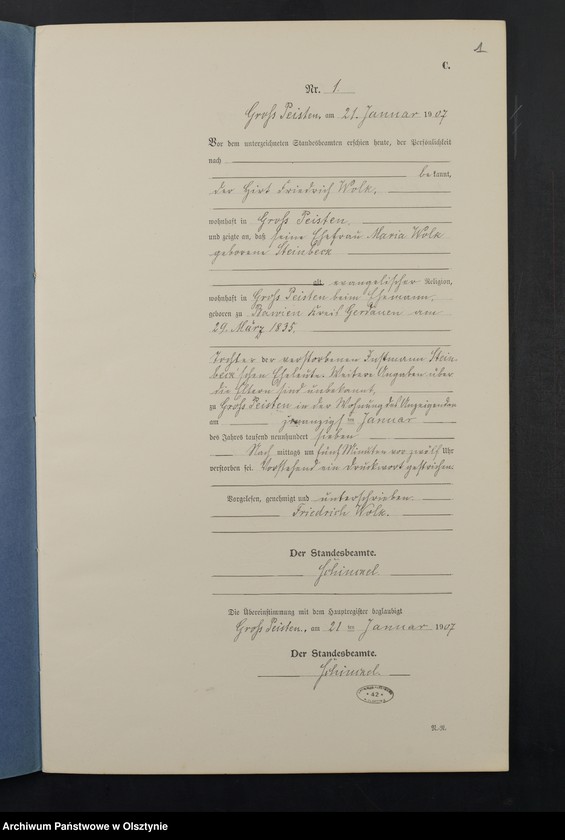 1
C.
Nr. 1
Groß Peisten, am 21. Januar 1907
Vor dem unterzeichneten Standesbeamten erschien heute, der Persönlichkeit
nach
bekannt,
der Hirt Friedrich Wolk.
wohnhaft in Groß Peisten
und zeigte an, daß seine Ehefrau Maria Wolk
geborene Steinbeck
alt, evangelischer Religion,
wohnhaft in Groß Peisten beim Ehemann,
geboren zu Kreis Gerdauen am
29. März 1835,
Tochter der verstorbenen Instmann Stein-
beck'schen Eheleute. Weitere Angaben über
die Eltern sind unbekannt,
zu Groß Peisten in der Wohnung des Anzeigenden
am zwanzigsten Januar
des Jahres tausend neunhundert sieben
Nachmittags um fünf Minuten vor zwölf Uhr
verstorben sei. Vorstehend ein Druckwort gestrichen.
Vorgelesen, genehmigt und unterschrieben
Friedrich Wolk.
Der Standesbeamte.
Schimmel
Die Übereinstimmung mit dem Hauptregister beglaubigt
Groß Peisten, am 21 ten Januar 1907
Der Standesbeamte.
Schimmel
* 42 *
Archiwum Państwowe w Olsztynie